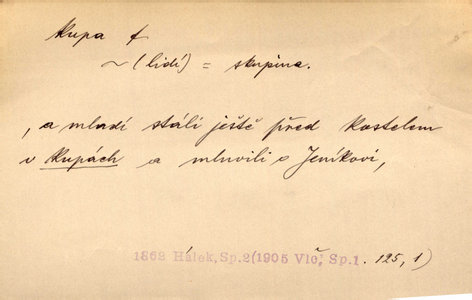 kupa f
~ (lidí) = skupina.
, a mladí stáli ještě před kostelem
v kupách a mluvili o Jeníkovi,
1862 Hálek, Sp.2(1905 Vlč, Sp.1. 125, 1)